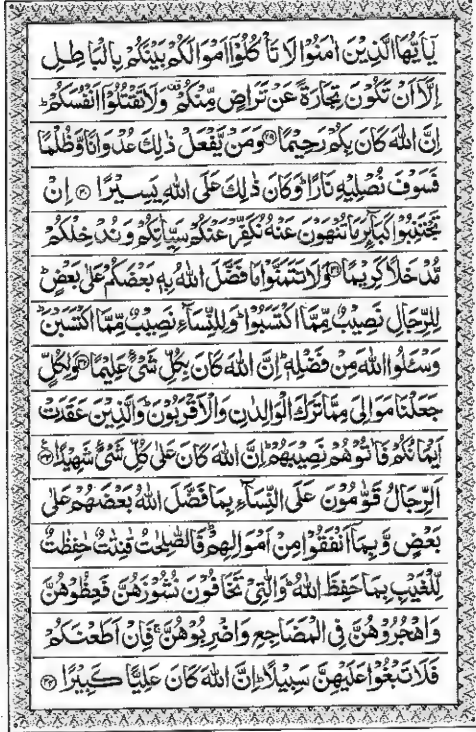 يٰۤاَيُّهَا الَّذِيْنَ اٰمَنُوْا لَا تَاْكُلُوْۤا اَمْوَالَكُمْ بَيْنَكُمْ بِالْبَاطِلِ
اِلَّاۤ اَنْ تَكُوْنَ تِجَارَةً عَنْ تَرَاضٍ مِّنْكُمْ ۫ وَلَا تَقْتُلُوْۤا اَنْفُسَكُمْ ؕ
اِنَّ اللّٰهَ كَانَ بِكُمْ رَحِيْمًا ﴿۲۹﴾ وَمَنْ يَّفْعَلْ ذٰلِكَ عُدْوَانًا وَّظُلْمًا
فَسَوْفَ نُصْلِيْهِ نَارًا ؕ وَكَانَ ذٰلِكَ عَلَى اللّٰهِ يَسِيْرًا ﴿۳۰﴾ اِنْ
تَجْتَنِبُوْا كَبَآئِرَ مَا تُنْهَوْنَ عَنْهُ نُكَفِّرْ عَنْكُمْ سَيِّاٰتِكُمْ وَنُدْخِلْكُمْ
مُّدْخَلًا كَرِيْمًا ﴿۳۱﴾ وَلَا تَتَمَنَّوْا مَا فَضَّلَ اللّٰهُ بِهٖ بَعْضَكُمْ عَلٰى بَعْضٍ ؕ
لِلرِّجَالِ نَصِيْبٌ مِّمَّا اكْتَسَبُوْا ؕ وَلِلنِّسَآءِ نَصِيْبٌ مِّمَّا اكْتَسَبْنَ ؕ
وَسْئَلُوا اللّٰهَ مِنْ فَضْلِهٖ ؕ اِنَّ اللّٰهَ كَانَ بِكُلِّ شَيْءٍ عَلِيْمًا ﴿۳۲﴾ وَلِكُلٍّ
جَعَلْنَا مَوَالِيَ مِمَّا تَرَكَ الْوَالِدٰنِ وَالْاَقْرَبُوْنَ ؕ وَالَّذِيْنَ عَقَدَتْ
اَيْمَانُكُمْ فَاٰتُوْهُمْ نَصِيْبَهُمْ ؕ اِنَّ اللّٰهَ كَانَ عَلٰى كُلِّ شَيْءٍ شَهِيْدًا ﴿۳۳﴾
اَلرِّجَالُ قَوّٰمُوْنَ عَلَى النِّسَآءِ بِمَا فَضَّلَ اللّٰهُ بَعْضَهُمْ عَلٰى
بَعْضٍ وَّبِمَاۤ اَنْفَقُوْا مِنْ اَمْوَالِهِمْ ؕ فَالصّٰلِحٰتُ قٰنِتٰتٌ حٰفِظٰتٌ
لِّلْغَيْبِ بِمَا حَفِظَ اللّٰهُ ؕ وَالّٰتِيْ تَخَافُوْنَ نُشُوْزَهُنَّ فَعِظُوْهُنَّ
وَاهْجُرُوْهُنَّ فِي الْمَضَاجِعِ وَاضْرِبُوْهُنَّ ۚ فَاِنْ اَطَعْنَكُمْ
فَلَا تَبْغُوْا عَلَيْهِنَّ سَبِيْلًا ؕ اِنَّ اللّٰهَ كَانَ عَلِيًّا كَبِيْرًا ﴿۳۴﴾